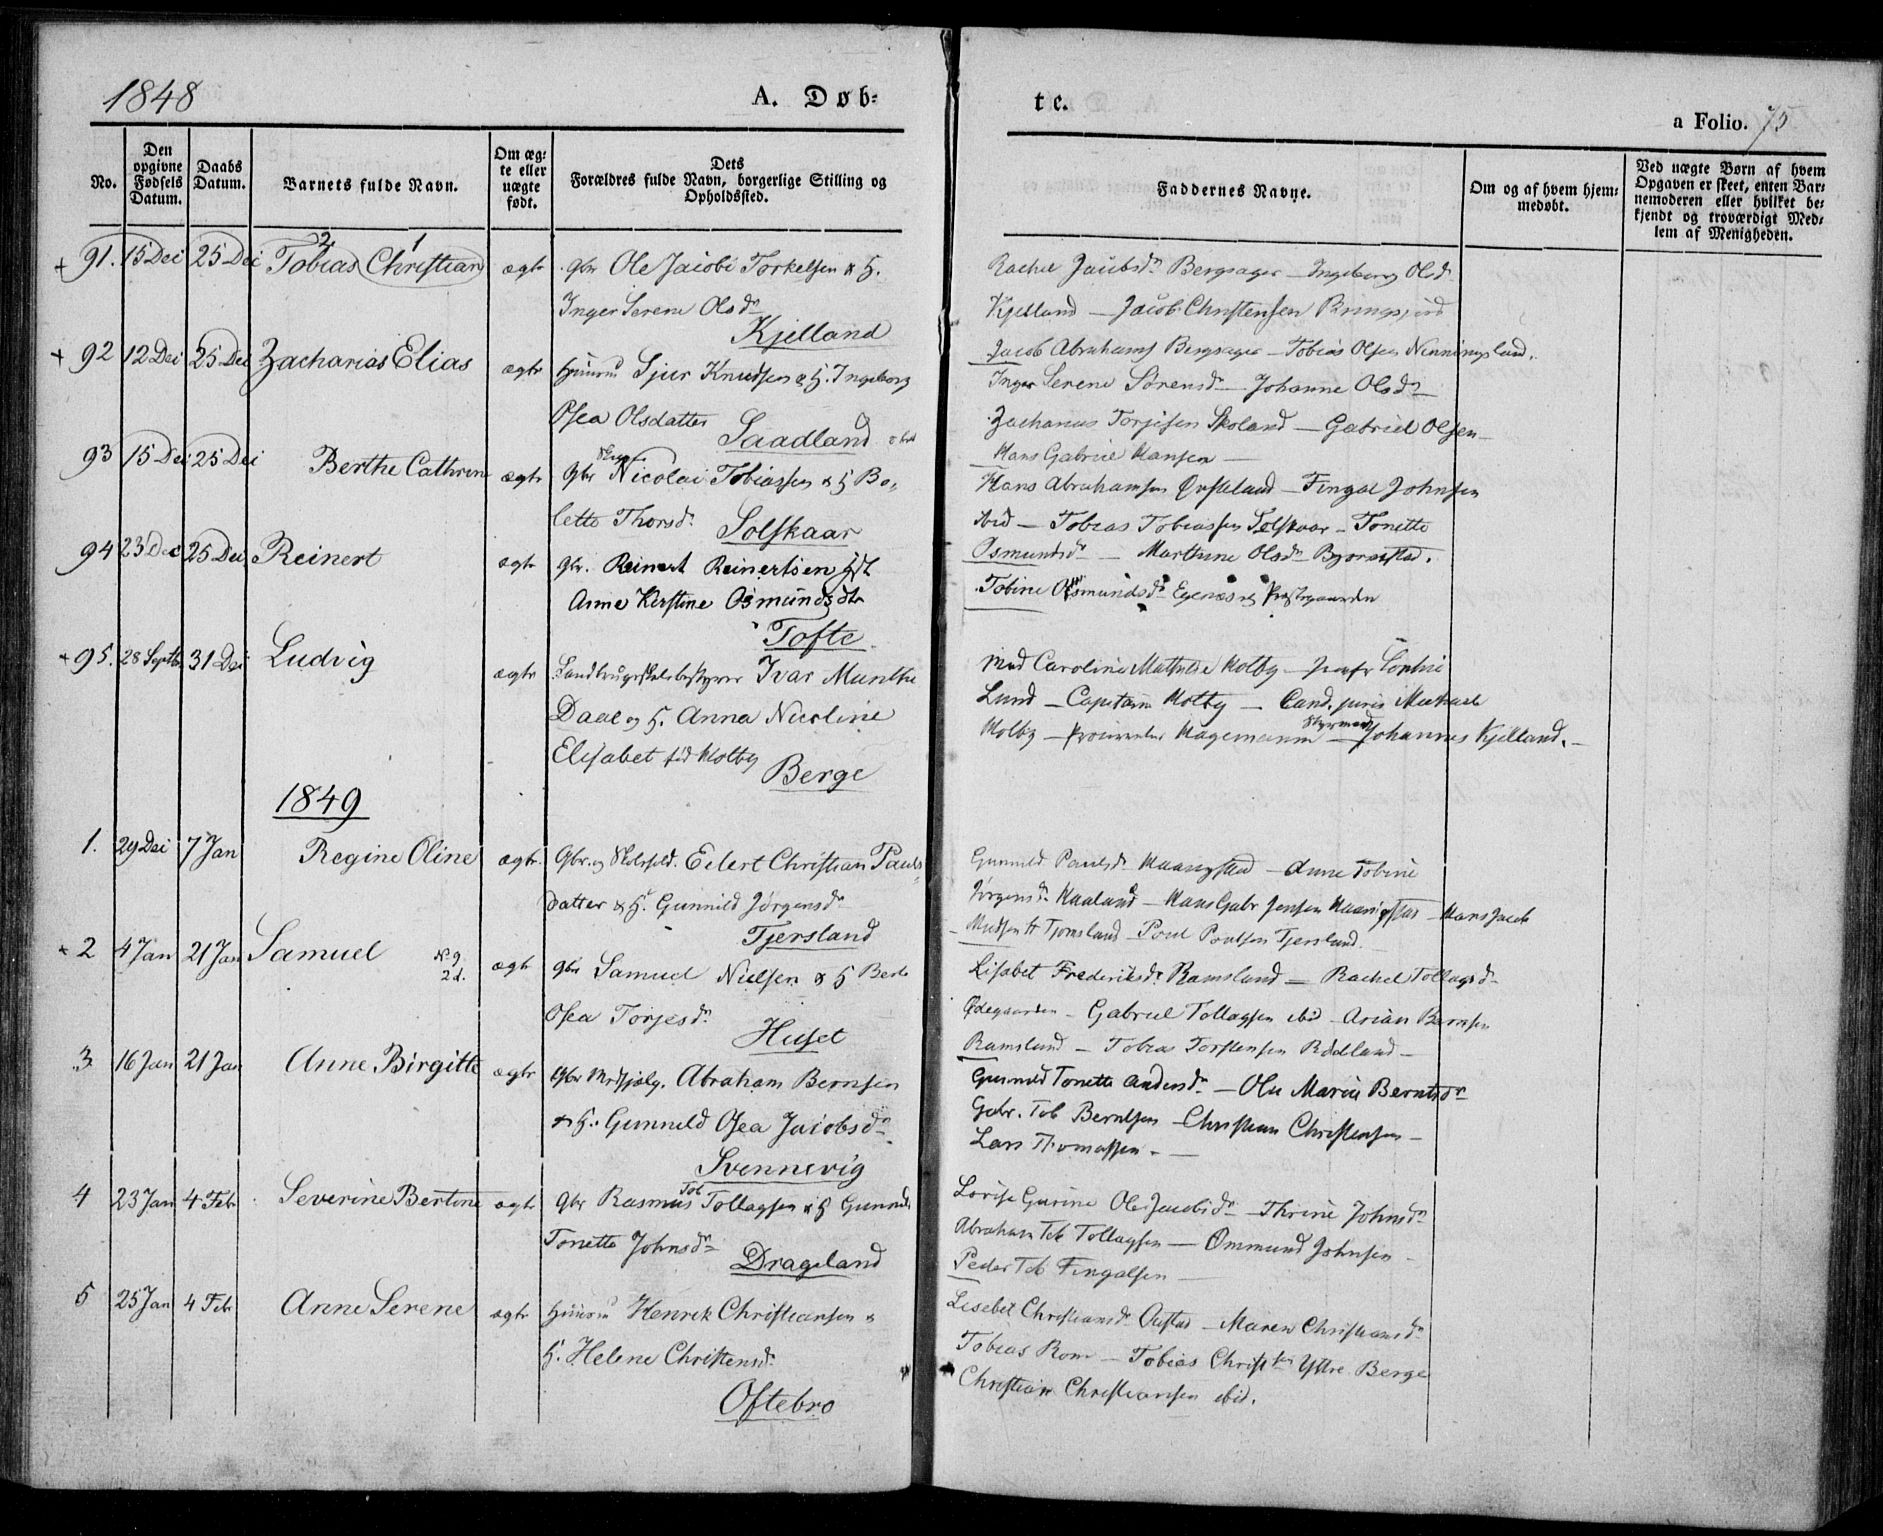 1848
A. Døb-
te.
a Folio. 75
No.
Den opgivne Fødsels Datum.
Daabs Datum.
Barnets fulde Navn.
Om ægte eller uægte født.
Dets Forældres fulde Navn, borgerlige Stilling og Opholdssted.
Faddernes Navne.
Om og af hvem hjemmedøbt.
Ved uægte Børn af hvem Opgaven er skeet, enten Barnemoderen eller hvilket bekjendt og troværdigt Medlem af Menigheden.
2 1
+ 91. 15 Dei 25 Dei Tobias Christian ægte gbr Ole Jacobi Torkelsen & H.
Inger Serene Olsdr
Kjelland
Rachel Jacobsdr Bergsager — Ingeborg Olsdr
Kjelland — Jacob Christensen
Jacob Abrahams Bergsager — Tobias Olsen Nenningsland.
+ 92 12 Dei 25 Dei Zacharias Elias ægte Huusm Sjur Knudsen & H. Ingeborg
Osea Olsdatter Saadland
Inger Serene Sørensdr — Johanne Olsdr
Zacharias Torjesen Skoland — Gabriel Olsen —
Hans Gabriel Hansen —
93 15 Dei 25 Dei Berthe Cathrine ægte Gbr Nicolai Tobiassen & H Bo-
lette Thorsdr Solskaar
Hans Abrahamsen Øvsteland — Fingal Johnsen
ibid — Tobias Tobiassen Solskaar — Tonette
Osmundsdr — Marthine Olsdr Bjornestad.
94 23 Dec 25 Dei Reinert ægte gbr. Reinert Reinertsen
Anne Kirstine Osmundsdtr
Tofte
Tobine Osmundsdr Egenæs Præstegaarden
+ 95. 28 Septbr 31 Dei Ludvig ægte Landbrugsskolebestyrer Ivar Munthe
Daae og H. Anna Nicoline
Elisabet fød Holby Berge
Mad Caroline Mathilde Holby — Jomfr Sophie
Lund — Capitain Holby — Cand. juris Michael
Holby — Hagemann — Styrmand Johannes Kjelland. —
1849
1. 29 Dei 7 Jan Regine Oline ægte. Gbr. og Skolehold. Eilert Christian Pauls-
datter & H. Gunnild Jørgensdr
Tjersland
Gunnild Paulsdr — Anne Tobine
Jørgensdr Haaland — Hans Gabr Jensen — Hans Jacob
Tjomsland Poul Poulsen Tjersland
+ 2 4 Jan 21 Jan Samuel No 9 2 d. ægte gbr Samuel Nielsen & H Berte
Osea Torjesdr
Huset
Lisabet Frederiksdr Ramsland — Rachel Tollagsdr —
Ødegaarden — Gabriel Tollagsen ibid — Arian Berntsen
Ramsland — Tobias Torstensen Rødland —
3. 16 Jan 21 Jan Anne Birgitte ægte Gbr Medhjælp. Abraham Bernsen
& H. Gunnild Osea Jacobsdr
Svennevig
Gunnild Tonette Andersdr — Ole Marie Berntsdr
Gabr. Tob Berntsen — Christian Christensen —
Lars Thomassen. —
4 23 Jan 4 Feb Severine Bertine ægte gbr Rasmus Tob Tollagsen & H Gunnild
Tonette Johnsdr Drageland
Lovise Gurine Ole Jacobsdr — Thrine Johnsdr
Abraham Tob Tollagsen — Ommund Johnsen —
Peder Tob Fingalsen —
5 25 Jan 4 Feb Anne Serene ægte Huusm Henrik Christiansen &
H. Helene Christensdr
Oftebro
Lisebet Christiansdr — Maren Christiansdr
Tobias Rom — Tobias Christsen Yttre Berge
Christian Christiansen ibid.